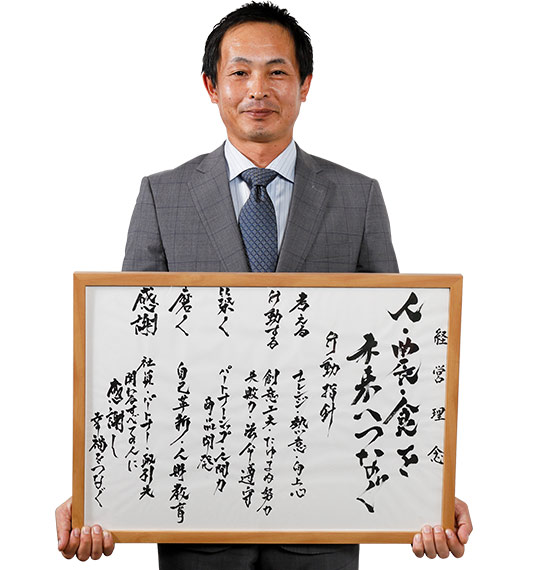 経営理念
人・農・食を
未来へつなぐ
行動指針
考える チャレンジ・熱意・向上心
行動する 創意工夫・たゆまぬ努力
失敗力・法令遵守
築く パートナーシップ・人間力
商品開発
磨く 自己革新・人財教育
感謝 社員・パートナー・取引先
関わるすべての人に
感謝し
幸福をつなぐ